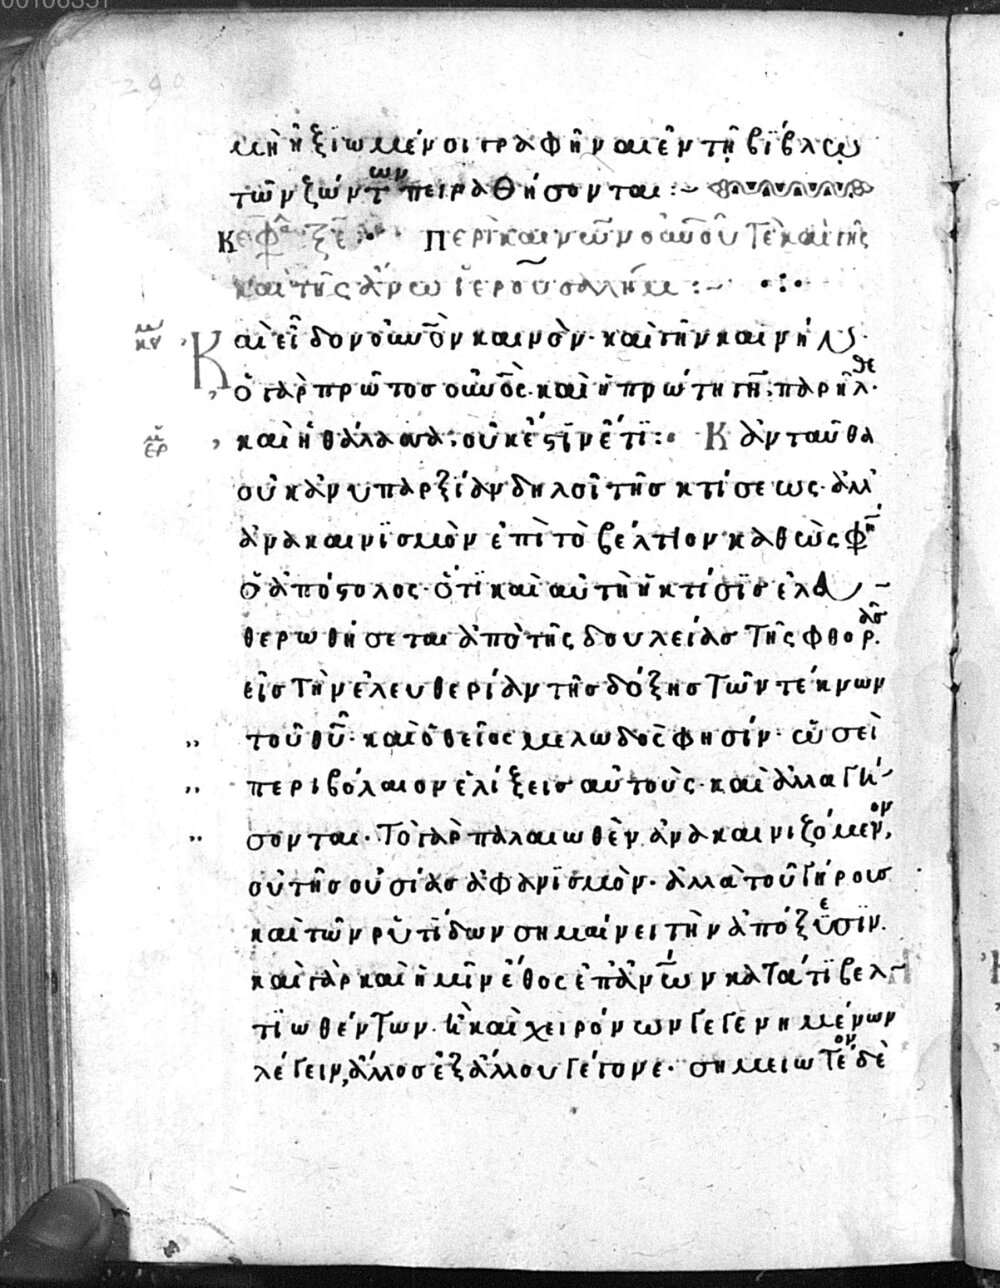 00106351
290
μὴ ἠξιωμένοι γραφῆναι ἐν τῇ βίβλῳ
τῶν ζώντων πειραθήσονται :~
Κεφ ξε ∴ Περὶ καινῶν οὐνοῦ τὲ καὶ γῆς
καὶ τῆς ἄνω ϊερουσαλήμ :~ ·:·
Καὶ εἶδον οὐνὸν καινὸν· καὶ γῆν καινήν·
Ὁ γὰρ πρῶτος οὐνὸς· καὶ ἡ πρώτη γῆ, παρῆλθε·
κει καὶ ἡ θάλασσα, οὐκ ἔστϊν ἔτϊ :· Κἀνταῦθα
οὐκ ἀνυπαρξίαν δηλοῖ τῆς κτίσεως· ἀλλ'
ἀνακαινϊσμὸν ἐπὶ τὸ βέλτιον καθὼς φη
ὁ ἀπόστολος· ὅτϊ καὶ αὐτὴ ἡ κτίσϊς ἐλευ
θερωθήσεται ἀπὸ τῆς δουλείας τῆς φθορᾶς·
εἰς τὴν ἐλευθερίαν τῆς δόξης τῶν τέκνων
,, τοῦ θῦ· καὶ ὁ θεῖος μελωδὸς φησίν· ὡσεὶ
,, περιβόλαιον ἑλίξεις αὐτοὺς· καὶ ἀλλαγή
,, σονται· Τὸ γὰρ παλαιωθὲν ἀνακαινιζόμενον,
οὐ τῆς οὐσίας ἀφανϊσμὸν· ἀλλὰ τοῦ γήρους
καὶ τῶν ρυτϊδων σημαίνει τὴν ἀπόξεσϊν·
καὶ γὰρ καὶ ἡμῖν ἔθος ἐπ' ἀνων κατά τϊ βελ
τϊωθέντων· ἢ καὶ χειρόνων γεγενημένων
λέγειν, ἄλλος ἐξ ἄλλου γέγονε· σημειωτέον δὲ